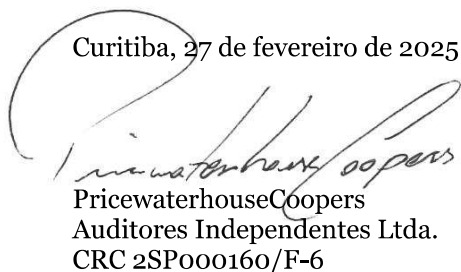 Curitiba, 27 de fevereiro de 2025
PricewaterhouseCoopers
PricewaterhouseCoopers
Auditores Independentes Ltda.
CRC 2SP000160/F-6